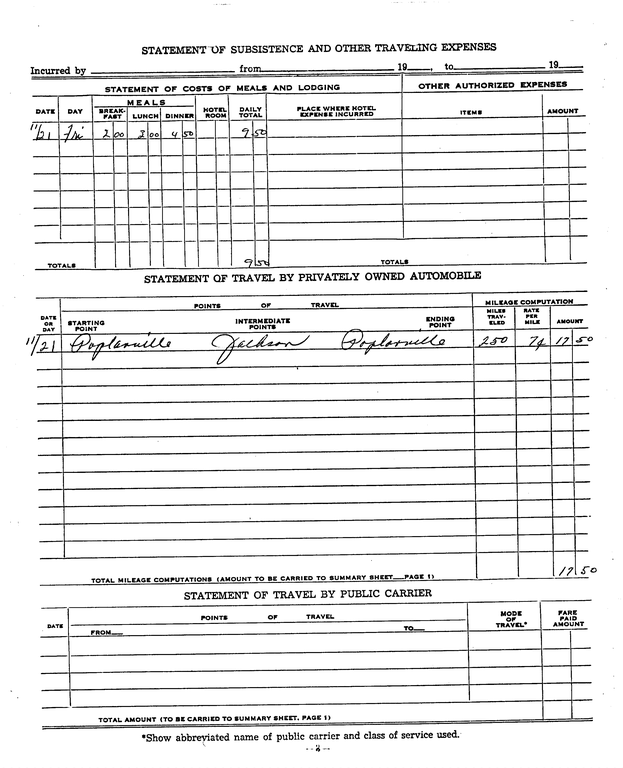 STATEMENT OF SUBSISTENCE AND OTHER TRAVELING EXPENSES
Incurred by from 19 , to 19
STATEMENT OF COSTS OF MEALS AND LODGING OTHER AUTHORIZED EXPENSES
DATE DAY MEALS BREAK-FAST LUNCH DINNER HOTEL ROOM DAILY TOTAL PLACE WHERE HOTEL EXPENSE INCURRED ITEMS AMOUNT
11/21 Fri 2 00 3 00 4 50 9 50
TOTALS 9 50 TOTALS
STATEMENT OF TRAVEL BY PRIVATELY OWNED AUTOMOBILE
POINTS OF TRAVEL MILEAGE COMPUTATION
DATE OR DAY STARTING POINT INTERMEDIATE POINTS ENDING POINT MILES TRAV-ELED RATE PER MILE AMOUNT
11/21 Poplarville Jackson Poplarville 250 7¢ 17 50
TOTAL MILEAGE COMPUTATIONS (AMOUNT TO BE CARRIED TO SUMMARY SHEET PAGE 1) 17 50
STATEMENT OF TRAVEL BY PUBLIC CARRIER
DATE POINTS OF TRAVEL MODE OF TRAVEL* FARE PAID AMOUNT
FROM TO
TOTAL AMOUNT (TO BE CARRIED TO SUMMARY SHEET, PAGE 1)
*Show abbreviated name of public carrier and class of service used.